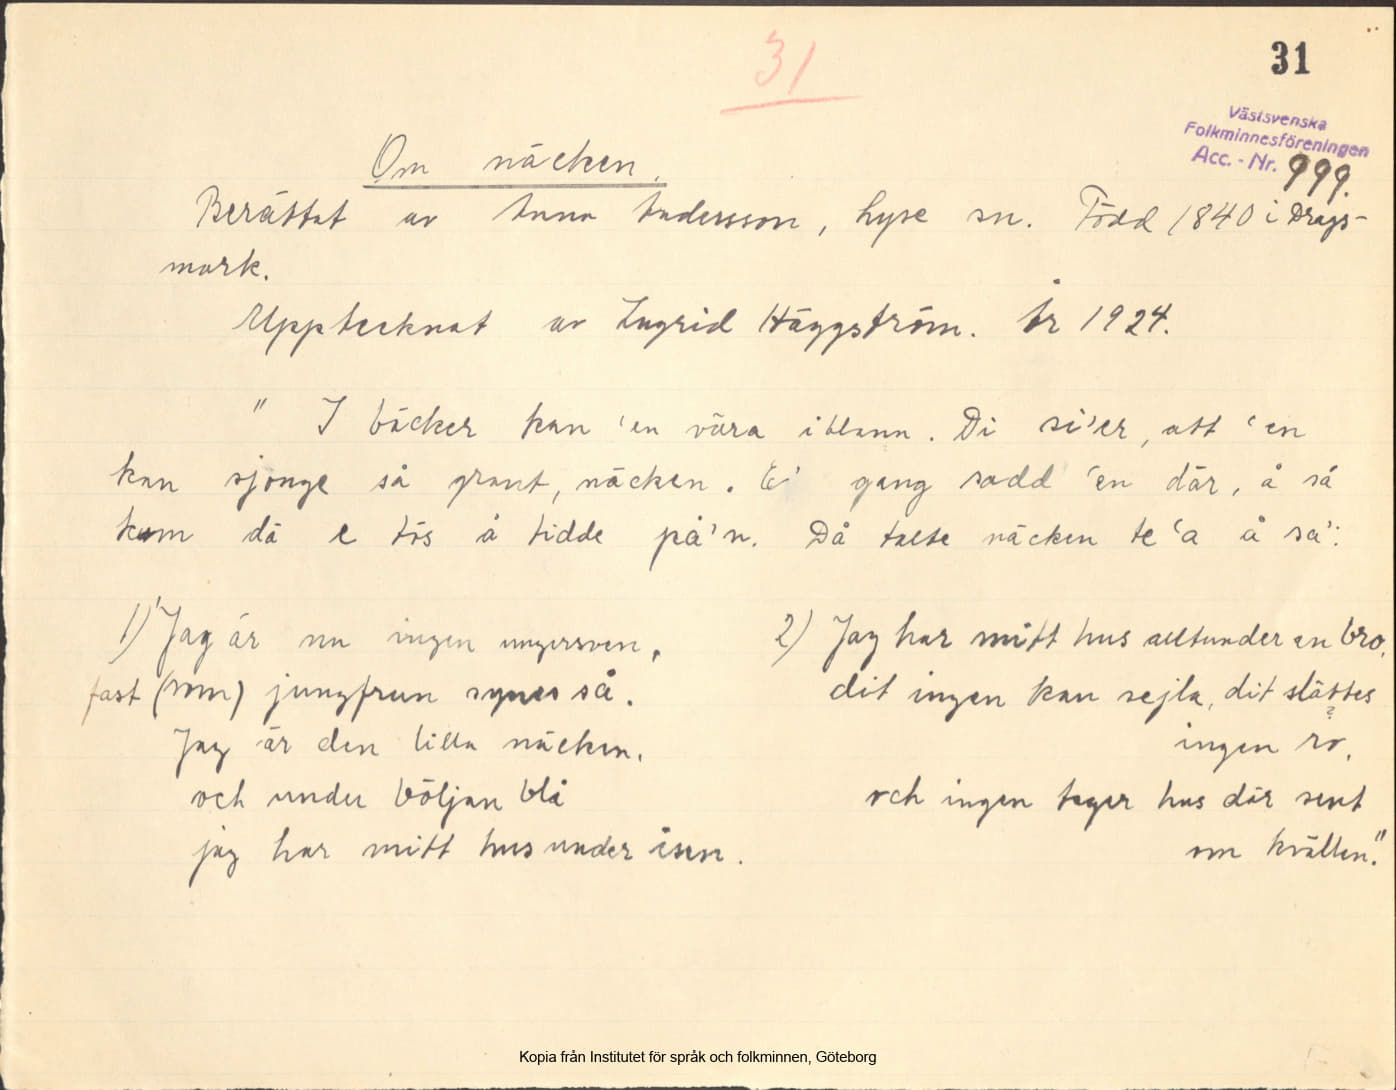 31
31
Västsvenska
Folkminnesföreningen
Acc. - Nr. 999.
Om näcken.
Berättat av Anna Andersson, Lyse sn. Född 1840 i Drags-
mark.
Upptecknat av Ingrid Häggström. År 1924.
" I bäcker kan 'en vära iblann. Di si'er, att 'en
kan sjonge så grant, näcken. Ei' gang sadd 'en där, å så
kom dä e tös å tidde på'n. Då talte näcken te 'a å sa':
1) "Jag är nu ingen ungersven,
fast (som) jungfrun synes så.
Jag är den lilla näcken,
och under böljan blå
jag har mitt hus under isen.
2) Jag har mitt hus alltunder en bro,
dit ingen kan sejla, dit slättes
?
ingen ro,
och ingen tager hus där sent
om kvällen."
Kopia från Institutet för språk och folkminnen, Göteborg